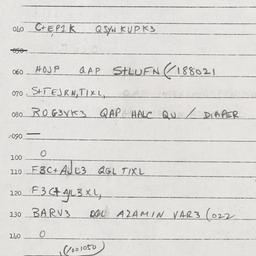 060 C+EP1K QSYNKUPKS
050
060 HOJF QAP S+LUFN(/188021
070 S+TEJRN,TIXL,
080 ROG3VK3 QAP HALC QU / DIAPER
090 —
100 O
110 F8C+AJL3 QGL TIXL
120 F3C+AJL3XL,
130 BARV3 AZAMIN VAR3 (022
140 O
(/021050)